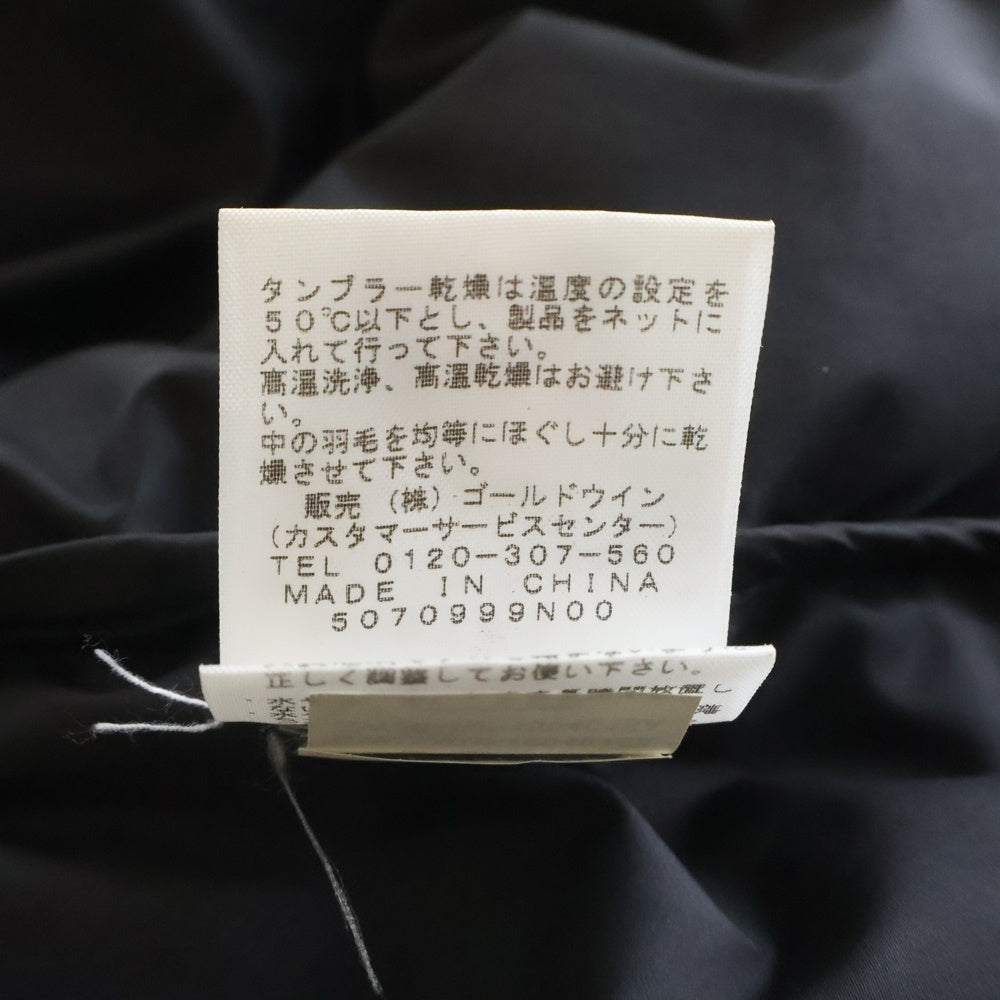 タンブラー乾燥は温度の設定を
50℃以下とし、製品をネットに
入れて行って下さい。
高温洗浄、高温乾燥はお避け下さ
い。
中の羽毛を均等にほぐし十分に乾
燥させて下さい。
販売 (株) ゴールドウイン
(カスタマーサービスセンター)
TEL 0120-307-560
MADE IN CHINA
5070999N00
正しく調整してお使い下さい。